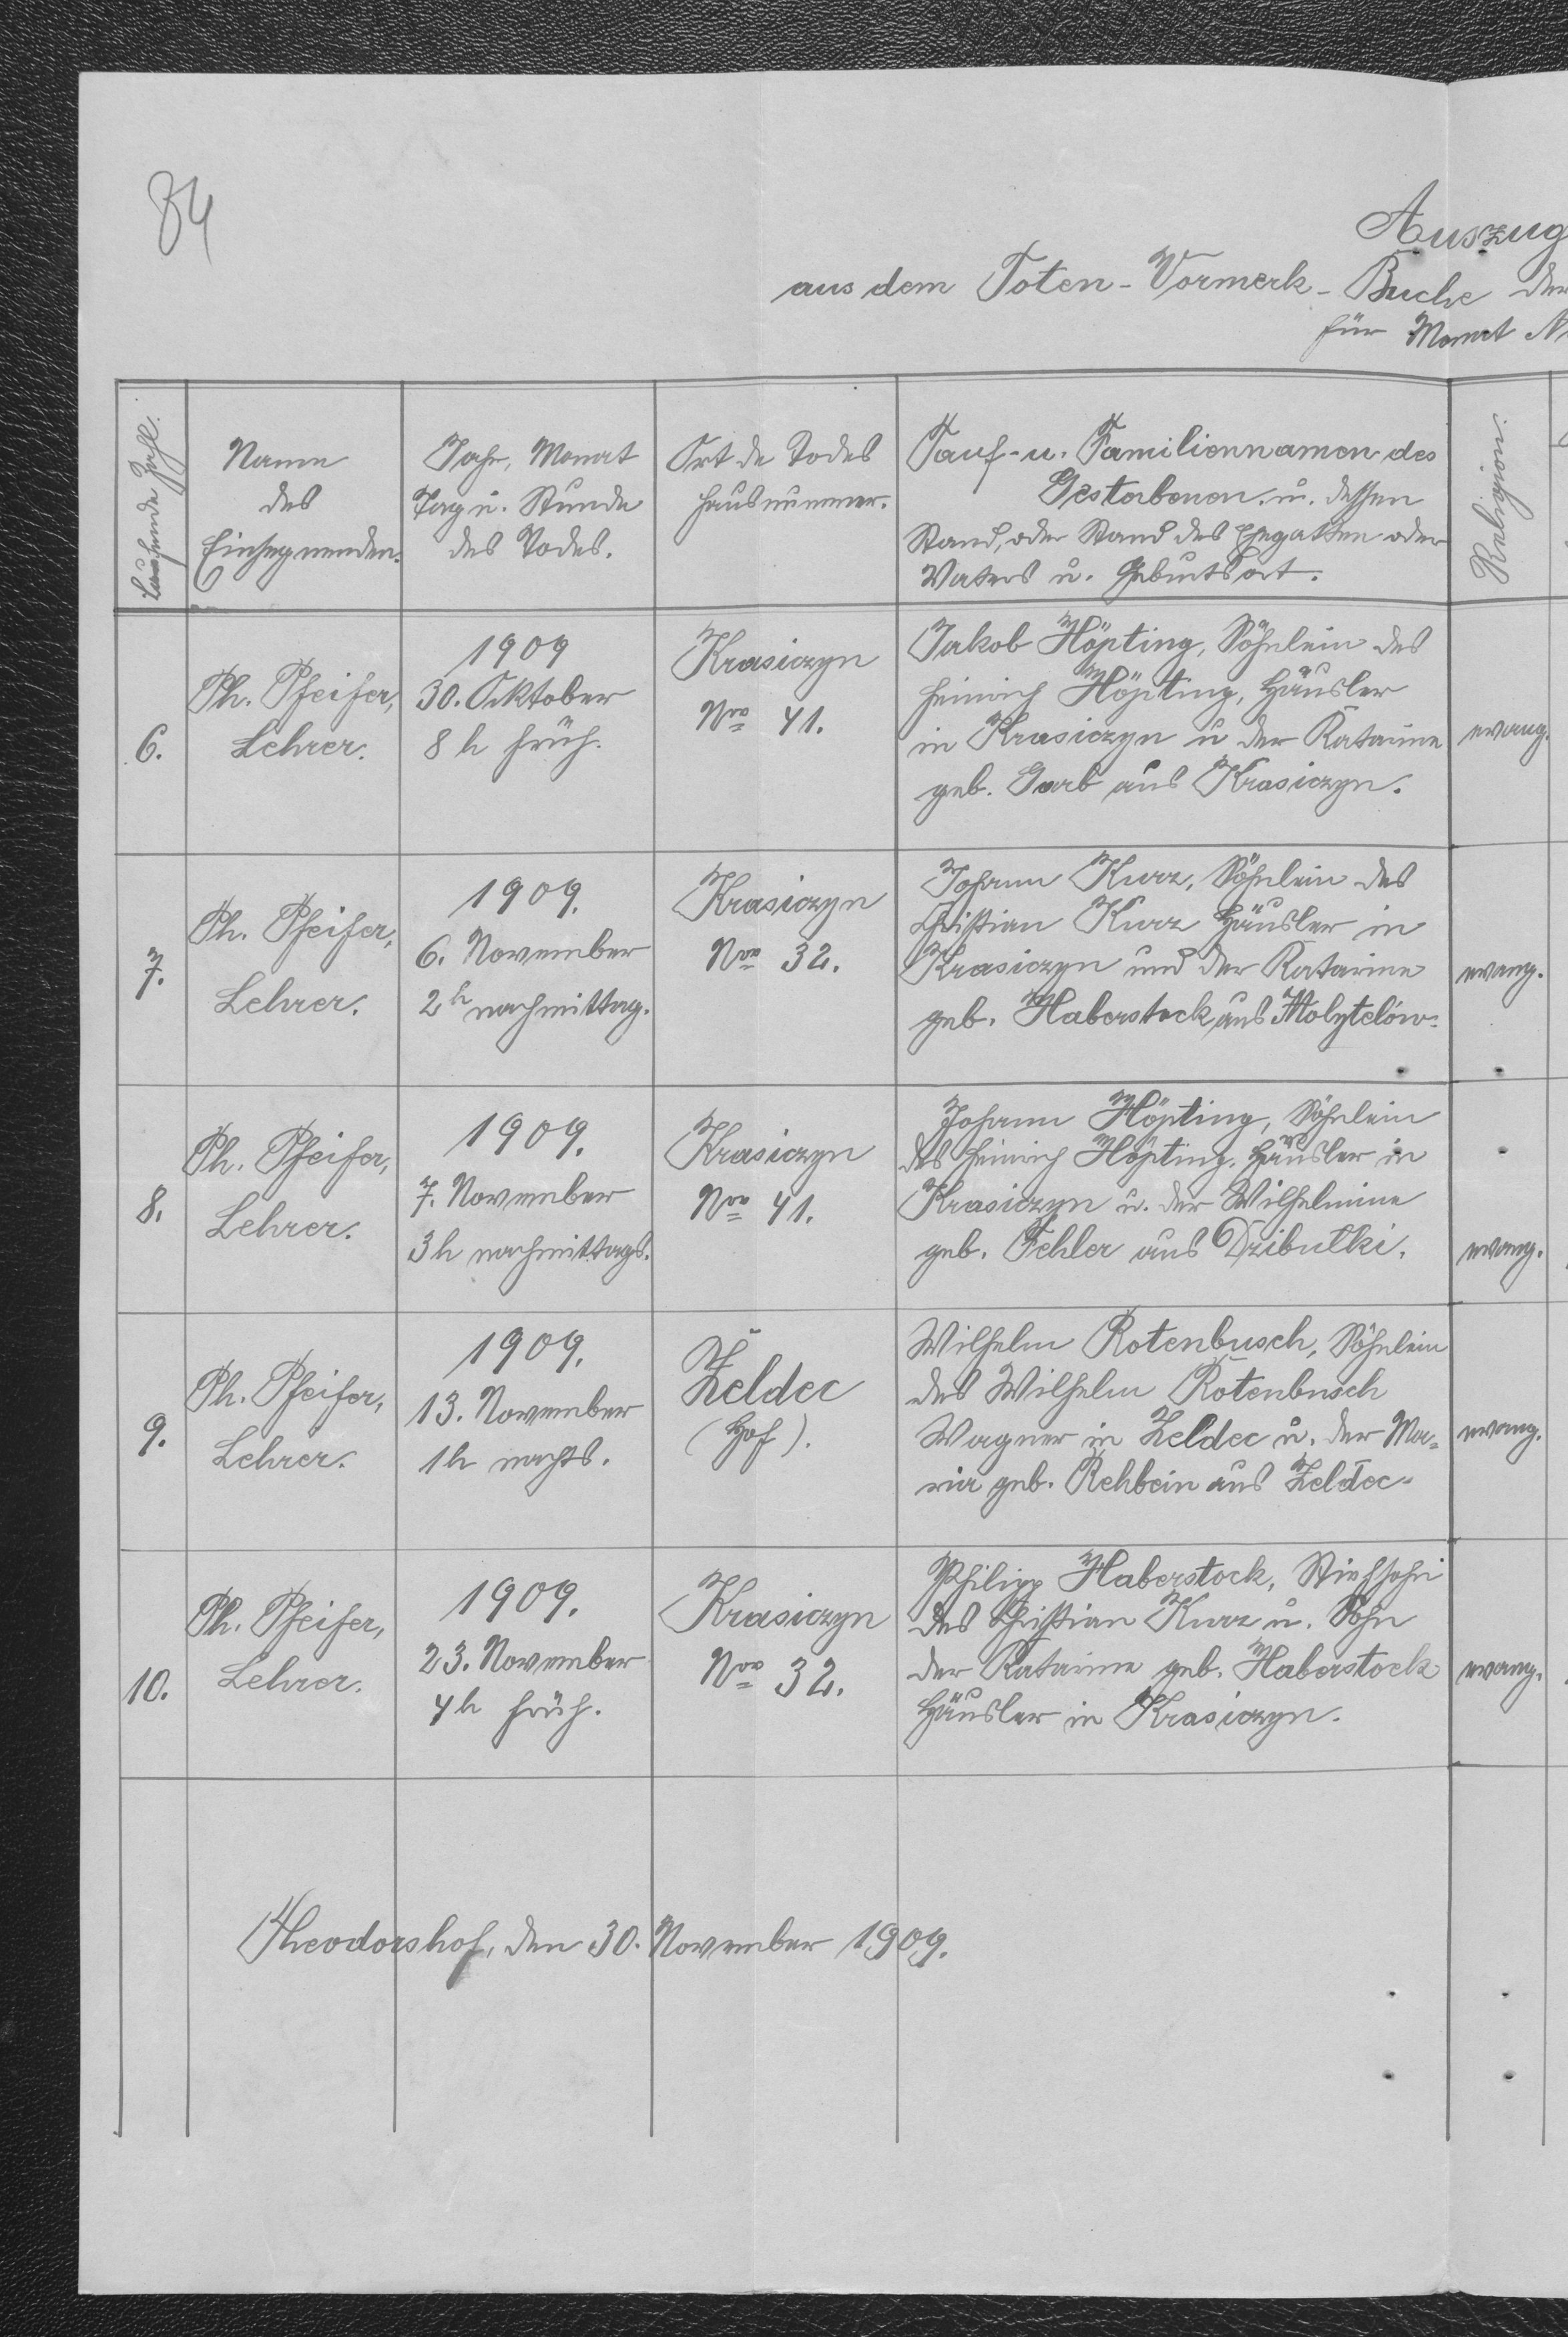 84
Auszug
aus dem Toten-Vormerk-Buche der
für Monat N
Laufende Zahl.
Name
des
Einsegnenden.
Jahr, Monat
Tag u. Stunde
des Todes.
Ort de Todes
Hausnummer.
Tauf- u. Familiennamen des
Gestorbenen u. dessen
Stand, oder Stand des Ehegatten oder
Vaters u. Geburtsort.
Religion.
6.
Ph. Pfeifer,
Lehrer.
1909
30. Oktober
8 h früh.
Krasiczyn
Nro 41.
Jakob Höpting, Söhnlein des
Heinrich Höpting, Häusler
in Krasiczyn u der Katarine
geb. Garb aus Krasiczyn.
evang.
7.
Ph. Pfeifer,
Lehrer.
1909.
6. November
2h nachmittag.
Krasiczyn
Nro 32.
Johann Kurz, Söhnlein des
Christian Kurz Häusler in
Krasiczyn und der Katarine
geb. Haberstock aus Molytelów.
evang.
8.
Ph. Pfeifer,
Lehrer.
1909.
7. November
3h nachmittags.
Krasiczyn
Nro 41.
Johann Höpting, Söhnlein
des Heinrich Höpting, Häusler in
Krasiczyn u. der Wilhelmine
geb. Fehler aus Dzibułki.
evang.
9.
Ph. Pfeifer,
Lehrer.
1909.
13. November
1h nachts.
Żeldec
(Hof).
Wilhelm Rotenbusch, Söhnlein
des Wilhelm Rotenbusch
Wagner in Zeldec u. der Ma=
ria geb. Rehbein aus Zeldec.
evang.
10.
Ph. Pfeifer,
Lehrer.
1909.
23. November
4h früh.
Krasiczyn
Nro 32.
Philipp Haberstock, Stiefsohn
des Christian Kurz u. Sohn
der Katarine geb. Haberstock
Häusler in Krasiczyn.
evang.
Theodorshof, den 30. November 1909.